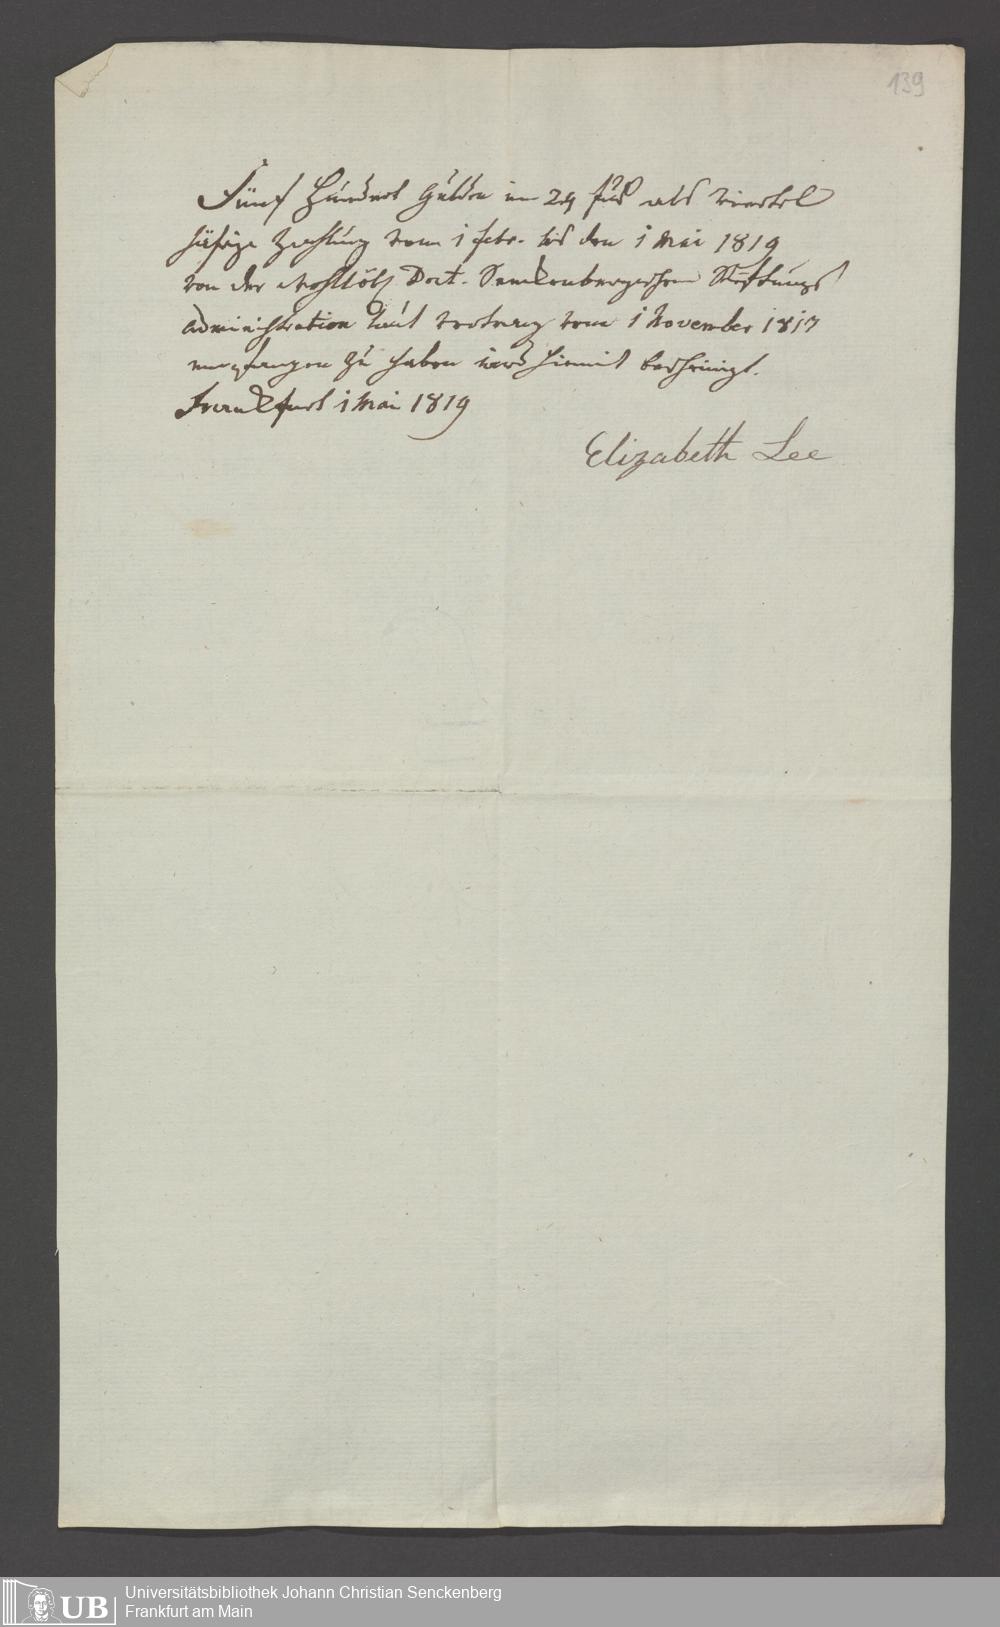 139
Fünf Hundert Gulden im 24 fus als viertel
jährige Zahlung vom 1 febr. bis den 1 Mai 1819
von der wohllöbl Doct. Senckenbergischen Stiftungs
administration laut vertrag vom 1 November 1817
empfangen zu haben wird hiemit bescheinigt.
Frankfurt 1 Mai 1819
Elizabeth Lee
UB
Universitätsbibliothek Johann Christian Senckenberg
Frankfurt am Main